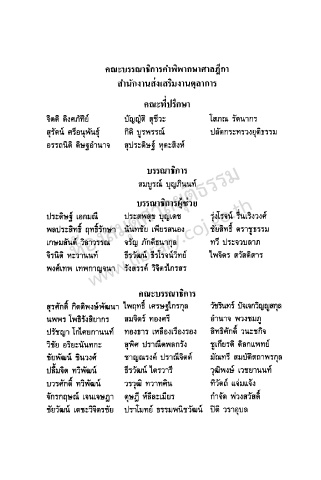 คณะบรรณาธิการคำพิพากษาศาลฎีกา
สำนักงานส่งเสริมงานตุลาการ
คณะที่ปรึกษา
จิตติ ติงศภัทิย์ บัญญัติ สุชีวะ โสภณ รัตนากร
สุรัตน์ ศรีอนุพันธุ์ กิติ บูรพรรณ์ ปลัดกระทรวงยุติธรรม
อรรถนิติ ดิษฐอำนาจ สุประดิษฐ์ หุตะสิงห์
บรรณาธิการ
สมบูรณ์ บุญภินนท์
บรรณาธิการผู้ช่วย
ประดิษฐ์ เอกมณี ประสพสุข บุญเดช รุ่งโรจน์ รื่นเริงวงศ์
พลประสิทธิ์ ฤทธิ์รักษา นันทชัย เพียรสนอง ชัยสิทธิ์ ตราชูธรรม
เกษมสันต์ วิลาวรรณ จรัญ ภักดีธนากุล ทวี ประจวบลาภ
จิรนิติ หะวานนท์ ธีรวัฒน์ ธีรโรจน์วิทย์ ไพจิตร สวัสดิสาร
พงศ์เทพ เทพกาญจนา รังสรรค์ วิจิตรไกรสร
คณะบรรณาธิการ
สุรศักดิ์ กิตติพงษ์พัฒนา ไพฤทธิ์ เศรษฐไกรกุล วัชรินทร์ ปัจเจกวิญญูสกุล
นพพร โพธิรังสิยากร สมจิตร์ ทองศรี อำนาจ พวงชมภู
ปรัชญา โกไศยกานนท์ ทองธาร เหลืองเรืองรอง สิทธิศักดิ์ วนะชกิจ
วิชัย อริยะนันทกะ สุพิศ ปราณีตพลกรัง ชูเกียรติ ดิลกแพทย์
ชัยพัฒน์ ชินวงศ์ ชาญณรงค์ ปราณีจิตต์ มัณทรี สมบัติสถาพรกุล
ปลื้มจิต ทวีพัฒน์ ธีรวัฒน์ ไตรวารี วุฒิพงษ์ เวชยานนท์
บวรศักดิ์ ทวีพัฒน์ วรวุฒิ ทวาทศิน ทิวัตถ์ แจ่มแจ้ง
จักรกฤษณ์ เจนเจษฎา ดุษฎี ห์ลีละเมียร กำจัด พ่วงสวัสดิ์
ชัยวัฒน์ เตชะวิจิตรชัย ปราโมทย์ ธรรมพนิชวัฒน์ ปิติ วราอุบล